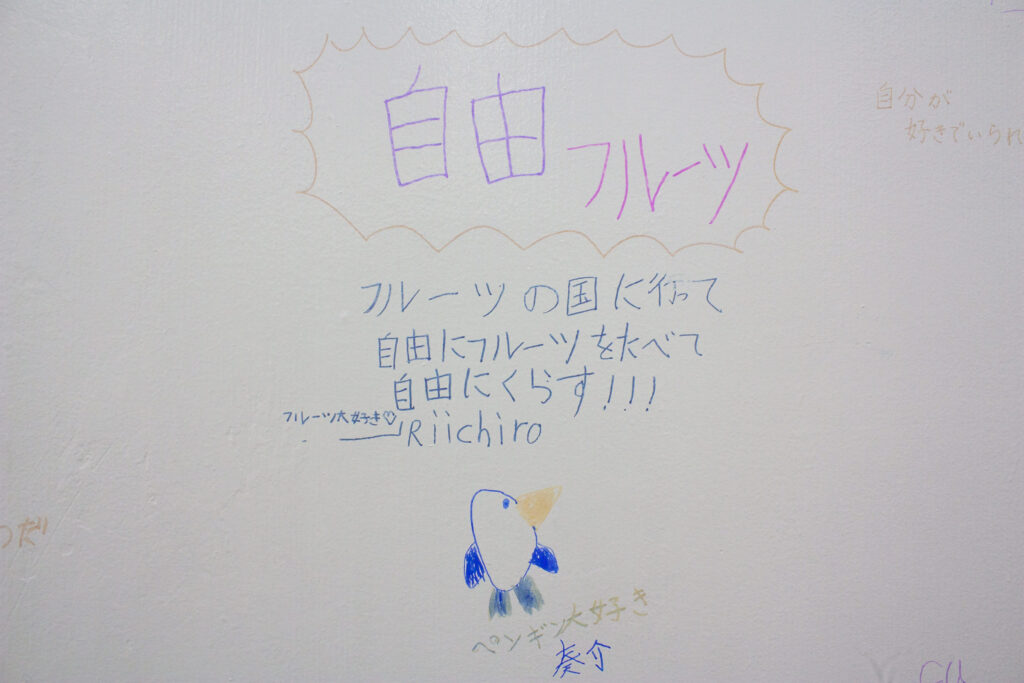 自由
フルーツ
自分が
好きでいられ
フルーツの国に行って
自由にフルーツをたべて
自由にくらす!!!
フルーツ大好き♡
Riichiro
ペンギン大好き
奏介